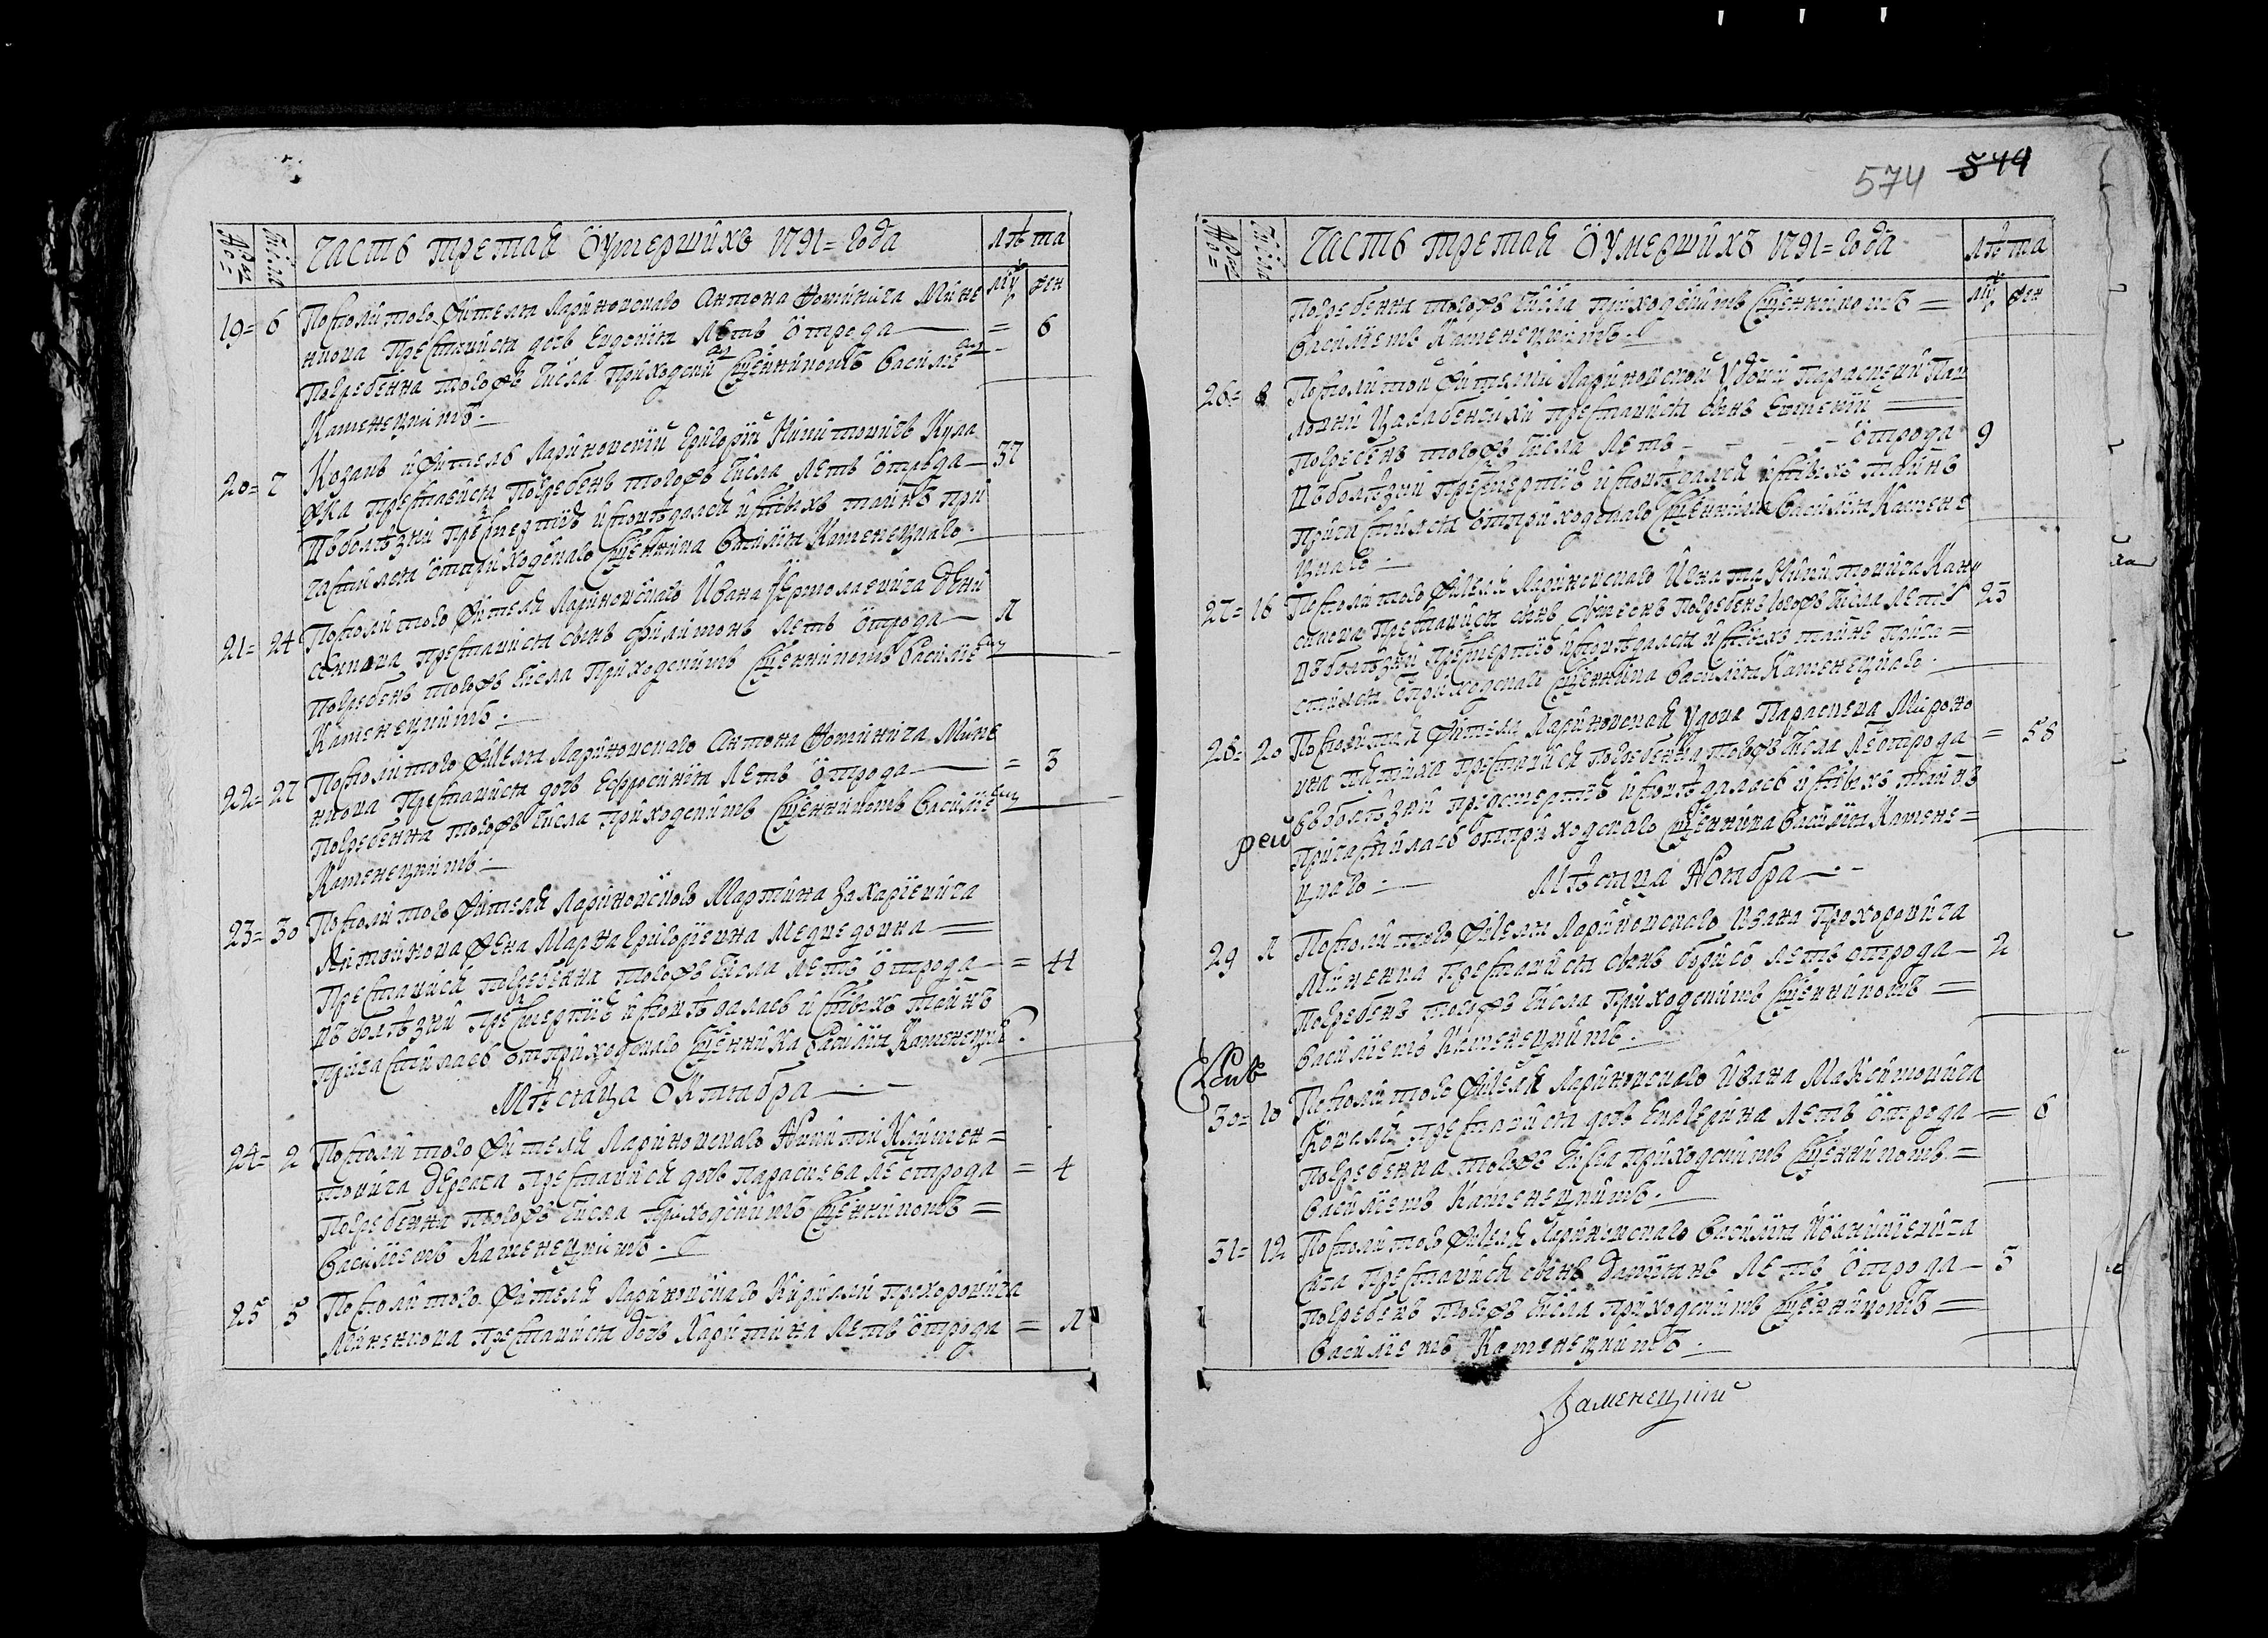 574 544
Часть третая Ѡумершихъ 1791= года
лѣта
муж
жен
19= 6 Посполитого жителя Лариновского Антона Фомѣнича Мине
нкова преставися дочь Евдокия летъ ѿрода — = 6
Погребенна тогожъ числа приходскимъ Сщенникомъ Василиемъ
Каменецкимъ.
20= 7 Козакъ ижитель Лариновский Григорий Никитовичъ
преставися погребенъ тогожъ числа летъ ѿрода — 37
Въболѣзни предсмертию исповѣдался истыхъ таинъ при
частился ѿприходского Сщенника Василия Каменецкаго.
21= 24 Посполитого жителя Лариновского Ивана Ермолаевича Дени
сенкова преставися сынъ Филимонъ летъ ѿрода — 1
погребенъ тогожъ числа приходскимъ Сщенникомъ Василиемъ
Каменецкимъ.
22= 27 Посполитого жителя Лариновского Антона Фомѣнича Мине
нкова преставися дочь Ефросиния летъ ѿрода — = 3
Погребенна тогожъ числа приходскимъ Сщенникомъ Василиемъ
Каменецкимъ.
23= 30 Посполитого жителя Лариновского Мартина Захариевича
Литвинова жена Марфа Григориевна Медведовна =
преставися погребенна тогожъ числа летъ ѿрода — = 44
Въболѣзни предсмертию исповѣдалась истыхъ таинъ
причастилась ѿприходского Сщенника Василия Каменецкаго.
Мѣсяца Октября —
24= 2 Посполитого жителя Лариновского Никити Климен=
товича преставися дочь Параскева ле ѿрода = 4
Погребенна тогожъ числа приходскимъ Сщенникомъ =
Василиемъ Каменецкимъ.
25 5 Посполитого жителя Лариновского Кирилли Прохоровича
Миненкова преставися дочь Харитина летъ ѿрода = 1
Часть третая Ѡумершихъ 1791= года
лѣта
муж
жен
Погребенна тогожъ числа приходскимъ Сщенникомъ =
Василиемъ Каменецкимъ.
26= 8 Посполитой жителки Лариновской удови Параскеви
преставися сынъ Евмений =
погребенъ тогожъ числа летъ - - - ѿрода 9
Въболѣзни предсмертию исповѣдался истыхъ таинъ
причастился ѿприходского Сщенника Василия Камене
цкаго.
27= 16 Посполитого жителя Лариновского Игната Никитовича
преставися сынъ погребенъ тогожъ числа летъ 23
Въболѣзни предсмертию исповѣдался истыхъ таинъ прича=
стился ѿприходского Сщенника Василия Каменецкаго.
28= 20 Посполитая жителка Лариновская удова Параскева Мироно
вна преставися погребенна тогожъ числа ле ѿрода = 58
въболѣзни предсмертию исповѣдалась истыхъ таинъ
рей
причастилась ѿприходского Сщенника Василия Камене=
цкаго. Мѣсяца Ноября —
29 1 Посполитого жителя Лариновского Ивана Прохоровича
Миненка преставися сынъ Борисъ летъ ѿрода — 2
Погребенъ тогожъ числа приходскимъ Сщенникомъ =
Василиемъ Каменецкимъ.
30= 10 Посполитого жителя Лариновского Ивана Максимовича
Коваля преставися дочь Екатерина летъ ѿрода = 6
Погребенна тогожъ числа приходскимъ Сщенникомъ =
Василиемъ Каменецкимъ.
31= 12 Посполитого жителя Лариновского Василия
преставися сынъ Дамиянъ летъ ѿрода — 3
погребенъ тогожъ числа приходскимъ Сщенникомъ =
Василиемъ Каменецкимъ.
Каменецкий